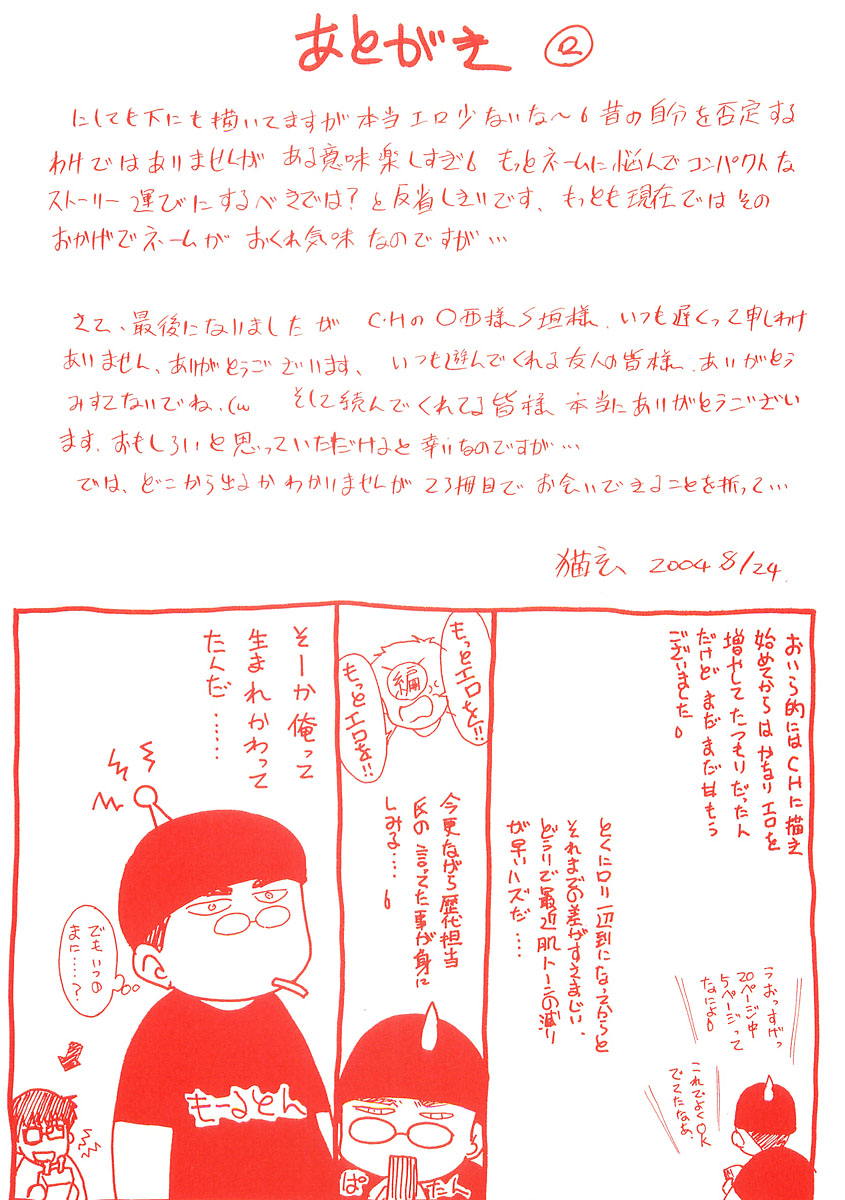 あとがき ②
にしても下にも描いてますが本当エロ少ないな〜。昔の自分を否定する
わけではありませんが ある意味楽しすぎ。もっとネームに悩んでコンパクトな
ストーリー運びにするべきでは?と反省しきりです、もっとも現在ではその
おかげでネームが おくれ気味なのですが…
さて、最後になりましたが C・Hの〇西様 S垣様、いつも遅くって申しわけ
ありません、ありがとうございます、いつも遊んでくれる友人の皆様、ありがとう
みすてないでね、(w そして読んでくれてる皆様 本当にありがとうござい
ます、おもしろいと思っていただけると幸いなのですが…
では、どこから出るかわかりませんが 2、3冊目で お会いできることを祈って…
猫玄 2004 8/24
おいら的にはCHに描き
始めてからはかなりエロを
増やしてたつもりだったん
だけど まだまだ甘もう
ございました。
うおっすげっ
20ページ中
5ページって
なによ。
これでよくOK
でてたなあ、
とくにロリ一辺到になってからと
それまでの差がすさまじい、
どうりで最近肌トーンの減り
が早いハズだ…
もっとエロを!!
編
もっとエロを!!
今更ながら歴代担当
氏の言ってた事が身に
しみる……。
ぱたん
そーか俺って
生まれかわって
たんだ……
でもいつの
まに……?
もーるとん